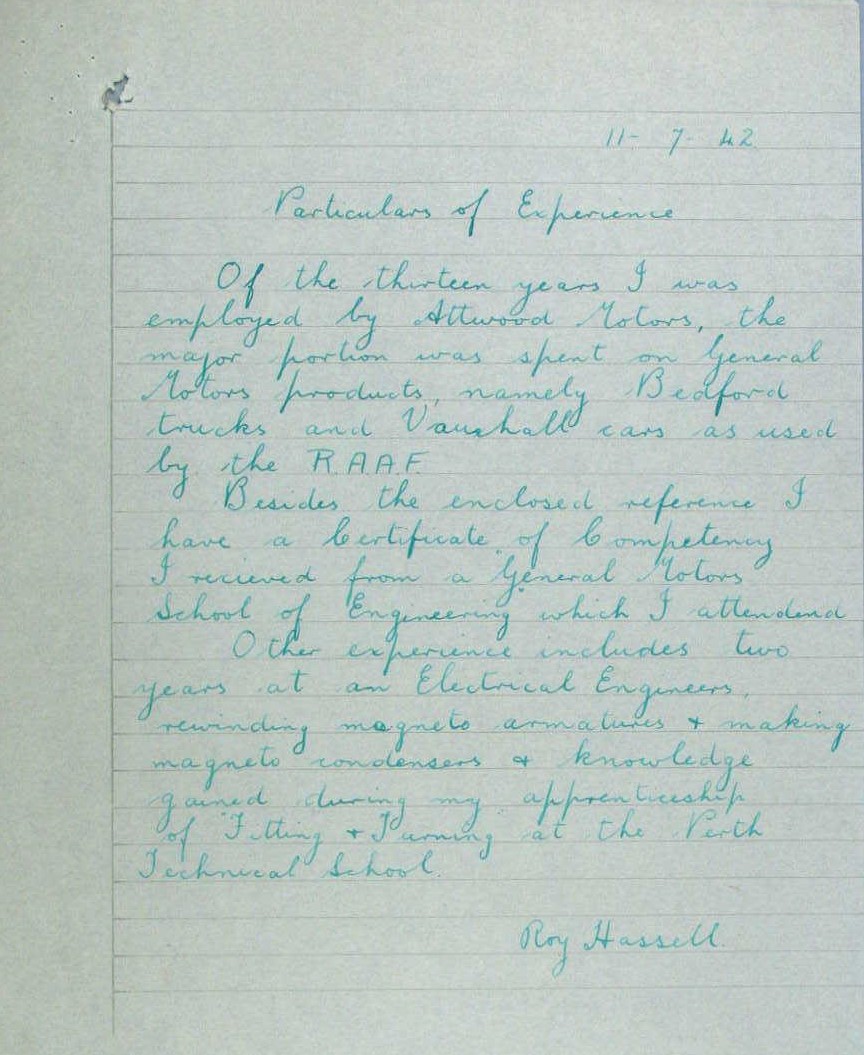 11- 7- 42
Particulars of Experience
Of the thirteen years I was
employed by Attwood Motors, the
major portion was spent on General
Motors products, namely Bedford
trucks and Vauxhall cars as used
by the R.A.A.F
Besides the enclosed reference I
have a Certificate of Competency
I recieved from a General Motors
School of Engineering which I attendend
Other experience includes two
years at an Electrical Engineers,
rewinding magneto armatures + making
magneto condensers + knowledge
gained during my apprenticeship
of Fitting + Turning at the Perth
Technical School.
Roy Hassell.